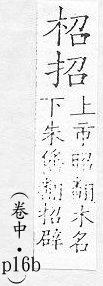 柖招
上市昭翻木名
下朱翻招辟
(卷中・
p16b)